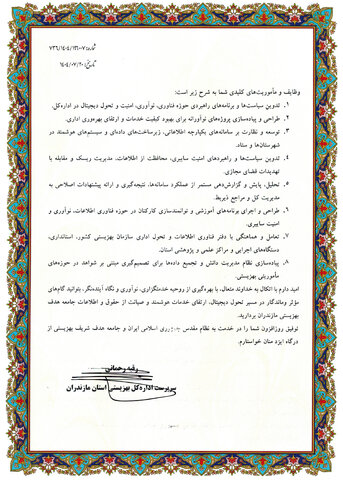 شماره: ۷۳۶/۱۴۰۴/۱۳۱۰۰۷
تاریخ: ۱۴۰۴/۰۷/۲۰
وظایف و مأموریت‌های کلیدی شما به شرح زیر است:
۱. تدوین سیاست‌ها و برنامه‌های راهبردی حوزه فناوری، نوآوری، امنیت و تحول دیجیتال در اداره‌کل.
۲. طراحی و پیاده‌سازی پروژه‌های نوآورانه برای بهبود کیفیت خدمات و ارتقای بهره‌وری اداری.
۳. توسعه و نظارت بر سامانه‌های یکپارچه اطلاعاتی، زیرساخت‌های داده‌ای و سیستم‌های هوشمند در
شهرستان‌ها و ستاد.
۴. تدوین سیاست‌ها و راهبردهای امنیت سایبری، محافظت از اطلاعات، مدیریت ریسک و مقابله با
تهدیدات فضای مجازی.
۵. تحلیل، پایش و گزارش‌دهی مستمر از عملکرد سامانه‌ها، نتیجه‌گیری و ارائه پیشنهادات اصلاحی به
مدیریت کل و مراجع ذیربط.
۶. طراحی و اجرای برنامه‌های آموزشی و توانمندسازی کارکنان در حوزه فناوری اطلاعات، نوآوری و
امنیت سایبری.
۷. تعامل و هماهنگی با دفتر فناوری اطلاعات و تحول اداری سازمان بهزیستی کشور، استانداری،
دستگاه‌های اجرایی و مراکز علمی و پژوهشی استان.
۸. پیاده‌سازی نظام مدیریت دانش و تجمیع داده‌ها برای تصمیم‌گیری مبتنی بر شواهد در حوزه‌های
مأموریتی بهزیستی.
امید دارم با اتکال به خداوند متعال، با بهره‌گیری از روحیه خدمتگزاری، نوآوری و نگاه آینده‌نگر، بتوانید گام‌های
مؤثر و ماندگار در مسیر تحول دیجیتال، ارتقای خدمات هوشمند و صیانت از حقوق و اطلاعات جامعه هدف
بهزیستی مازندران بردارید.
توفیق روزافزون شما را در خدمت به نظام مقدس جمهوری اسلامی ایران و جامعه هدف شریف بهزیستی از
درگاه ایزد منان خواستارم.
رقیه رحمانی
سرپرست اداره‌کل بهزیستی استان مازندران